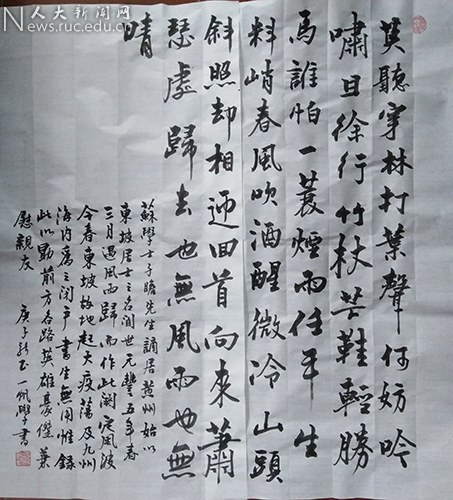 人大新闻网
News.ruc.edu.cn
莫聽穿林打葉聲何妨吟
嘯且徐行竹杖芒鞋輕勝
馬誰怕一蓑煙雨任平生
料峭春風吹酒醒微冷山頭
斜照却相迎回首向來蕭
瑟處歸去也無風雨也無
晴
蘇學士子瞻先生謫居黃州始以
東坡居士之名聞世元豐五年春
三月遇風雨歸而作此闋定風波
今春東坡故地起大疫蕩及九州
海内為之閉戶書生無用惟錄
此以勖前方各路英雄豪傑兼
慰親友
庚子 一帆學書